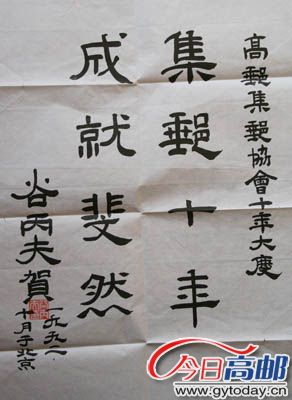 高郵集郵協會十年大慶
集郵十年
成就斐然
谷丙夫賀
一九九二
十月于北京
今日高邮
www.gytoday.cn